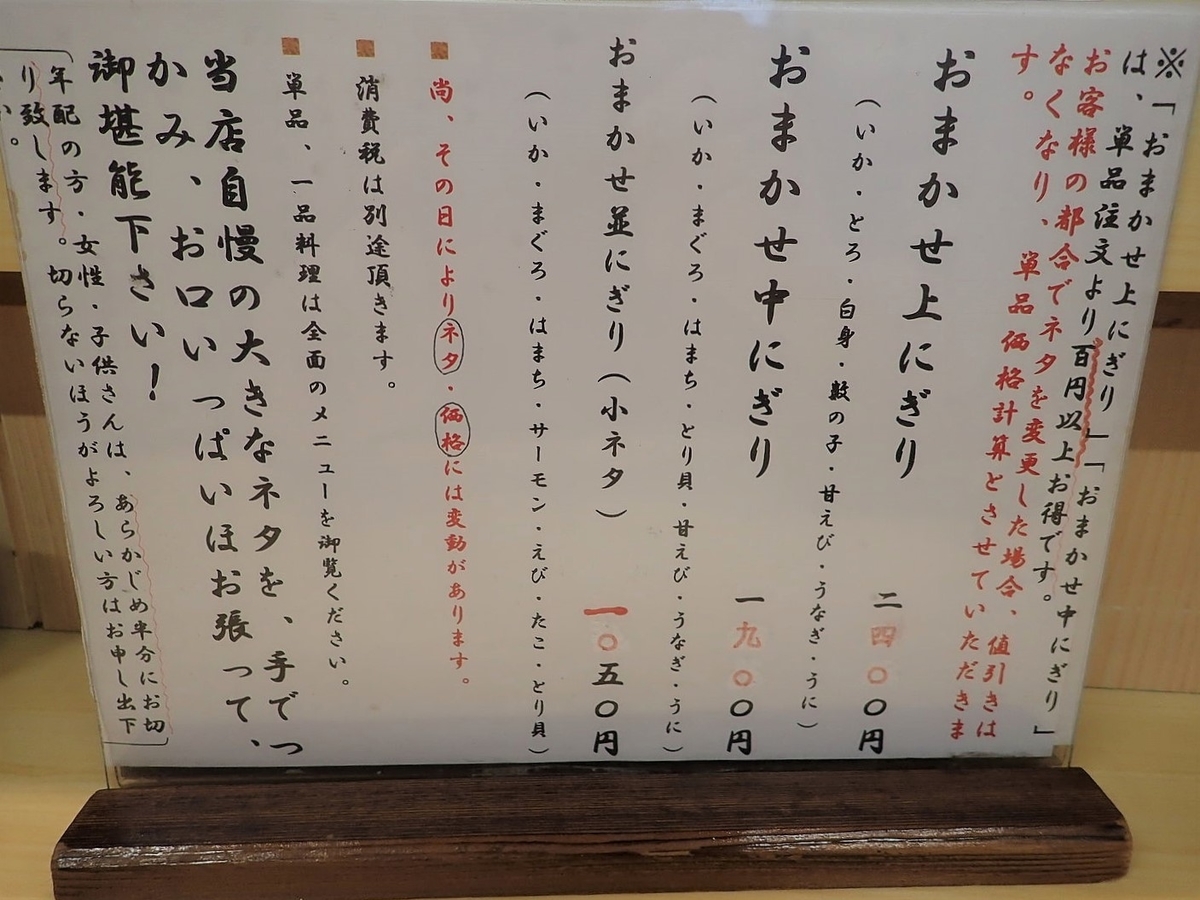 ※「おまかせ上にぎり」「おまかせ中にぎり」
は、単品注文より百円以上お得です。
お客様の都合でネタを変更した場合、値引きは
なくなり、単品価格計算とさせていただきま
す。
おまかせ上にぎり 二四〇〇円
(いか・とろ・白身・数の子・甘えび・うなぎ・うに)
おまかせ中にぎり 一九〇〇円
(いか・まぐろ・はまち・とり貝・甘えび・うなぎ・うに)
おまかせ並にぎり(小ネタ) 一〇五〇円
(いか・まぐろ・はまち・サーモン・えび・たこ・とり貝)
尚、その日によりネタ・価格には変動があります。
消費税は別途頂きます。
単品、一品料理は全面のメニューを御覧ください。
当店自慢の大きなネタを、手でつ
かみ、お口いっぱいほお張って、
御堪能下さい!
年配の方・女性・子供さんは、あらかじめ半分にお切
り致します。切らないほうがよろしい方はお申し出下
さい。